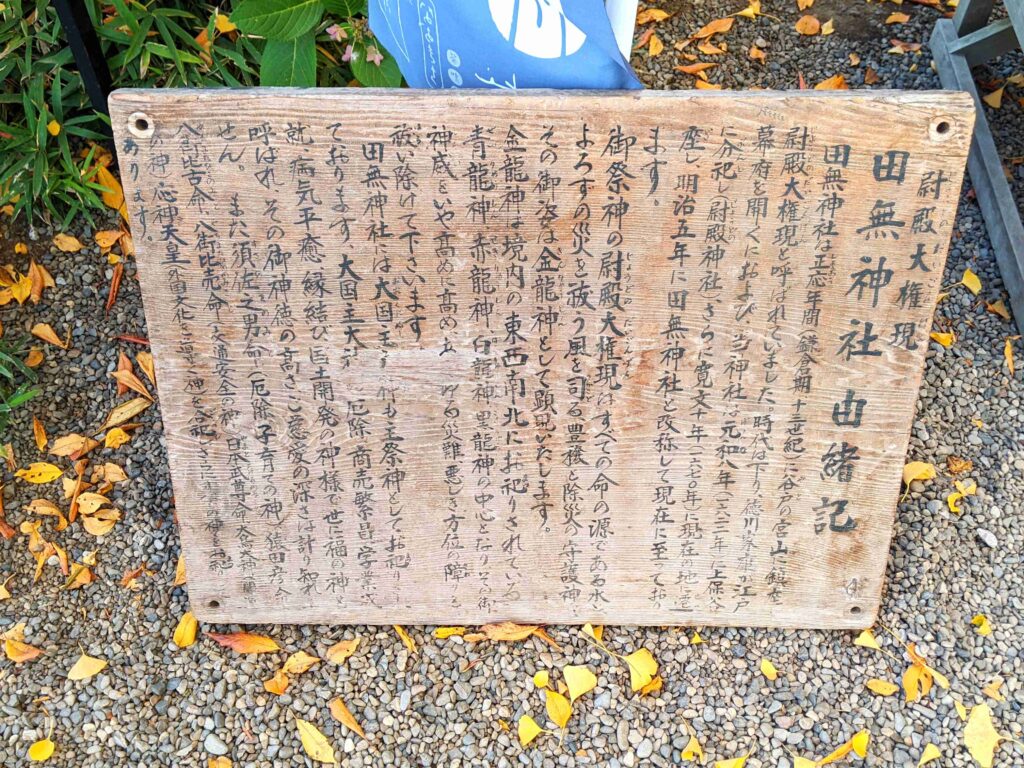 尉殿大権現
田無神社由緒記
田無神社は正応年間(鎌倉期・十三世紀)に谷戸の宮山に鎮座
尉殿大権現と呼ばれていました。時代は下り、徳川家康が江戸
幕府を開くにおよび、当神社は元和八年(一六二二年)に上保谷
に分祀し(尉殿神社)、さらに寛文十年(一六七〇年)に現在の地に
座し、明治五年に田無神社と改称して現在に至っており
ます。
御祭神の尉殿大権現はすべての命の源である水と
よろずの災を祓う風を司る豊穣と除災の守護神
その御姿は金龍神として顕現いたします。
金龍神は境内の東西南北にお祀りされている
青龍神、赤龍神、白龍神、黒龍神の中心となりその御
神威をいや高めに高め
災難悪しき方位の障りを
祓い除けて下さいます
田無神社には大国主 神も主祭神としてお祀り
ております。大国主大神 厄除、商売繁昌、学業成
就、病気平癒、縁結び、国土開発の神様で世に福の神と
呼ばれ、その御神徳の高さと慈愛の深さは計り知れ
せん。また須佐之男命(厄除、子育ての神)、猿田彦命
八街比古命、八街比売命(交通安全の神)、日本武尊命、大鳥大神
の神、応神天皇(外国文化を導く神)を
あります。